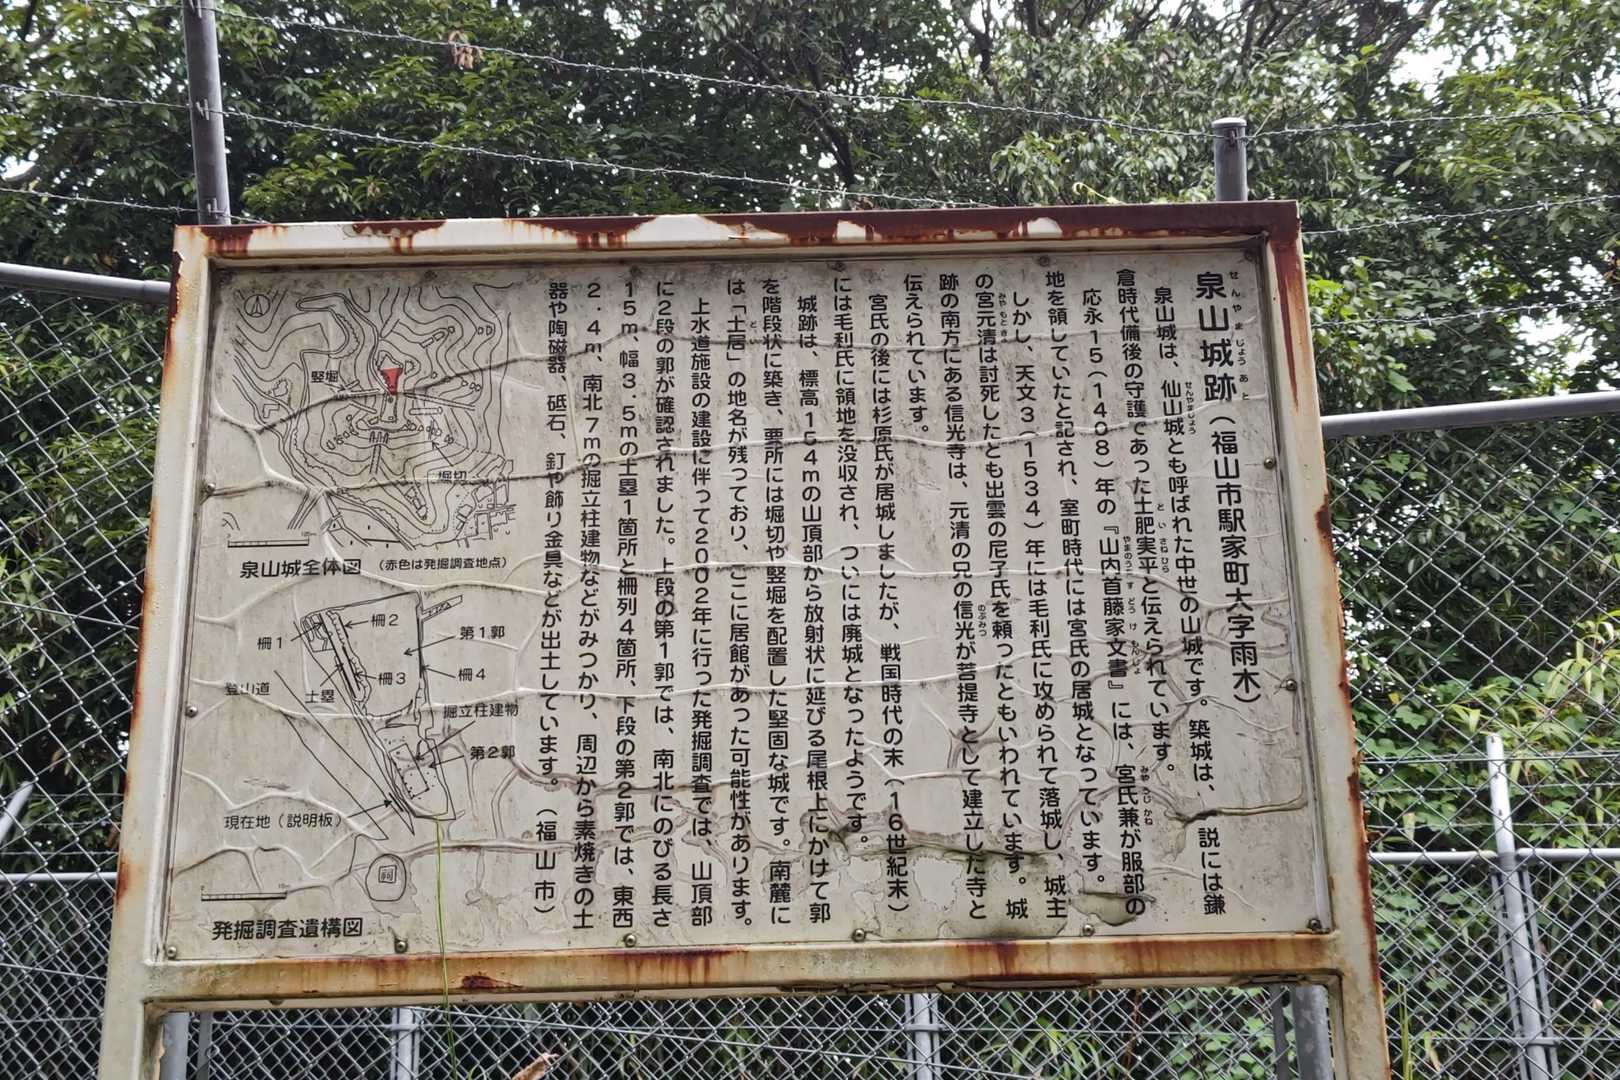 泉山城跡（福山市駅家町大字雨木）
せんやまじょうあと
泉山城は、仙山城とも呼ばれた中世の山城です。築城は、一説には鎌
せんやまじょう
倉時代備後の守護であった土肥実平と伝えられています。
といさねひら
応永15（1408）年の『山内首藤家文書』には、宮氏兼が服部の
やまのうこすどうけもんじょ
みやうじかね
地を領していたと記され、室町時代には宮氏の居城となっています。
しかし、天文3（1534）年には毛利氏に攻められて落城し、城主
の宮元清は討死したとも出雲の尼子氏を頼ったともいわれています。城
みやもときよ
跡の南方にある信光寺は、元清の兄の信光が菩提寺として建立した寺と
のぶみつ
伝えられています。
宮氏の後には杉原氏が居城しましたが、戦国時代の末（16世紀末）
には毛利氏に領地を没収され、ついには廃城となったようです。
城跡は、標高154mの山頂部から放射状に延びる尾根上にかけて郭
を階段状に築き、要所には堀切や竪堀を配置した堅固な城です。南麓に
は「土居」の地名が残っており、ここに居館があった可能性があります。
どい
上水道施設の建設に伴って2002年に行った発掘調査では、山頂部
に2段の郭が確認されました。上段の第1郭では、南北にのびる長さ
15m、幅3.5mの土塁1箇所と柵列4箇所、下段の第2郭では、東西
2.4m、南北7mの掘立柱建物などがみつかり、周辺から素焼きの土
器や陶磁器、砥石、釘や飾り金具などが出土しています。（福山市）
竪堀
堀切
泉山城全体図（赤色は発掘調査地点）
柵2
柵1
第1郭
柵3
柵4
登山道
土塁
掘立柱建物
第2郭
現在地（説明板）
祠
発掘調査遺構図